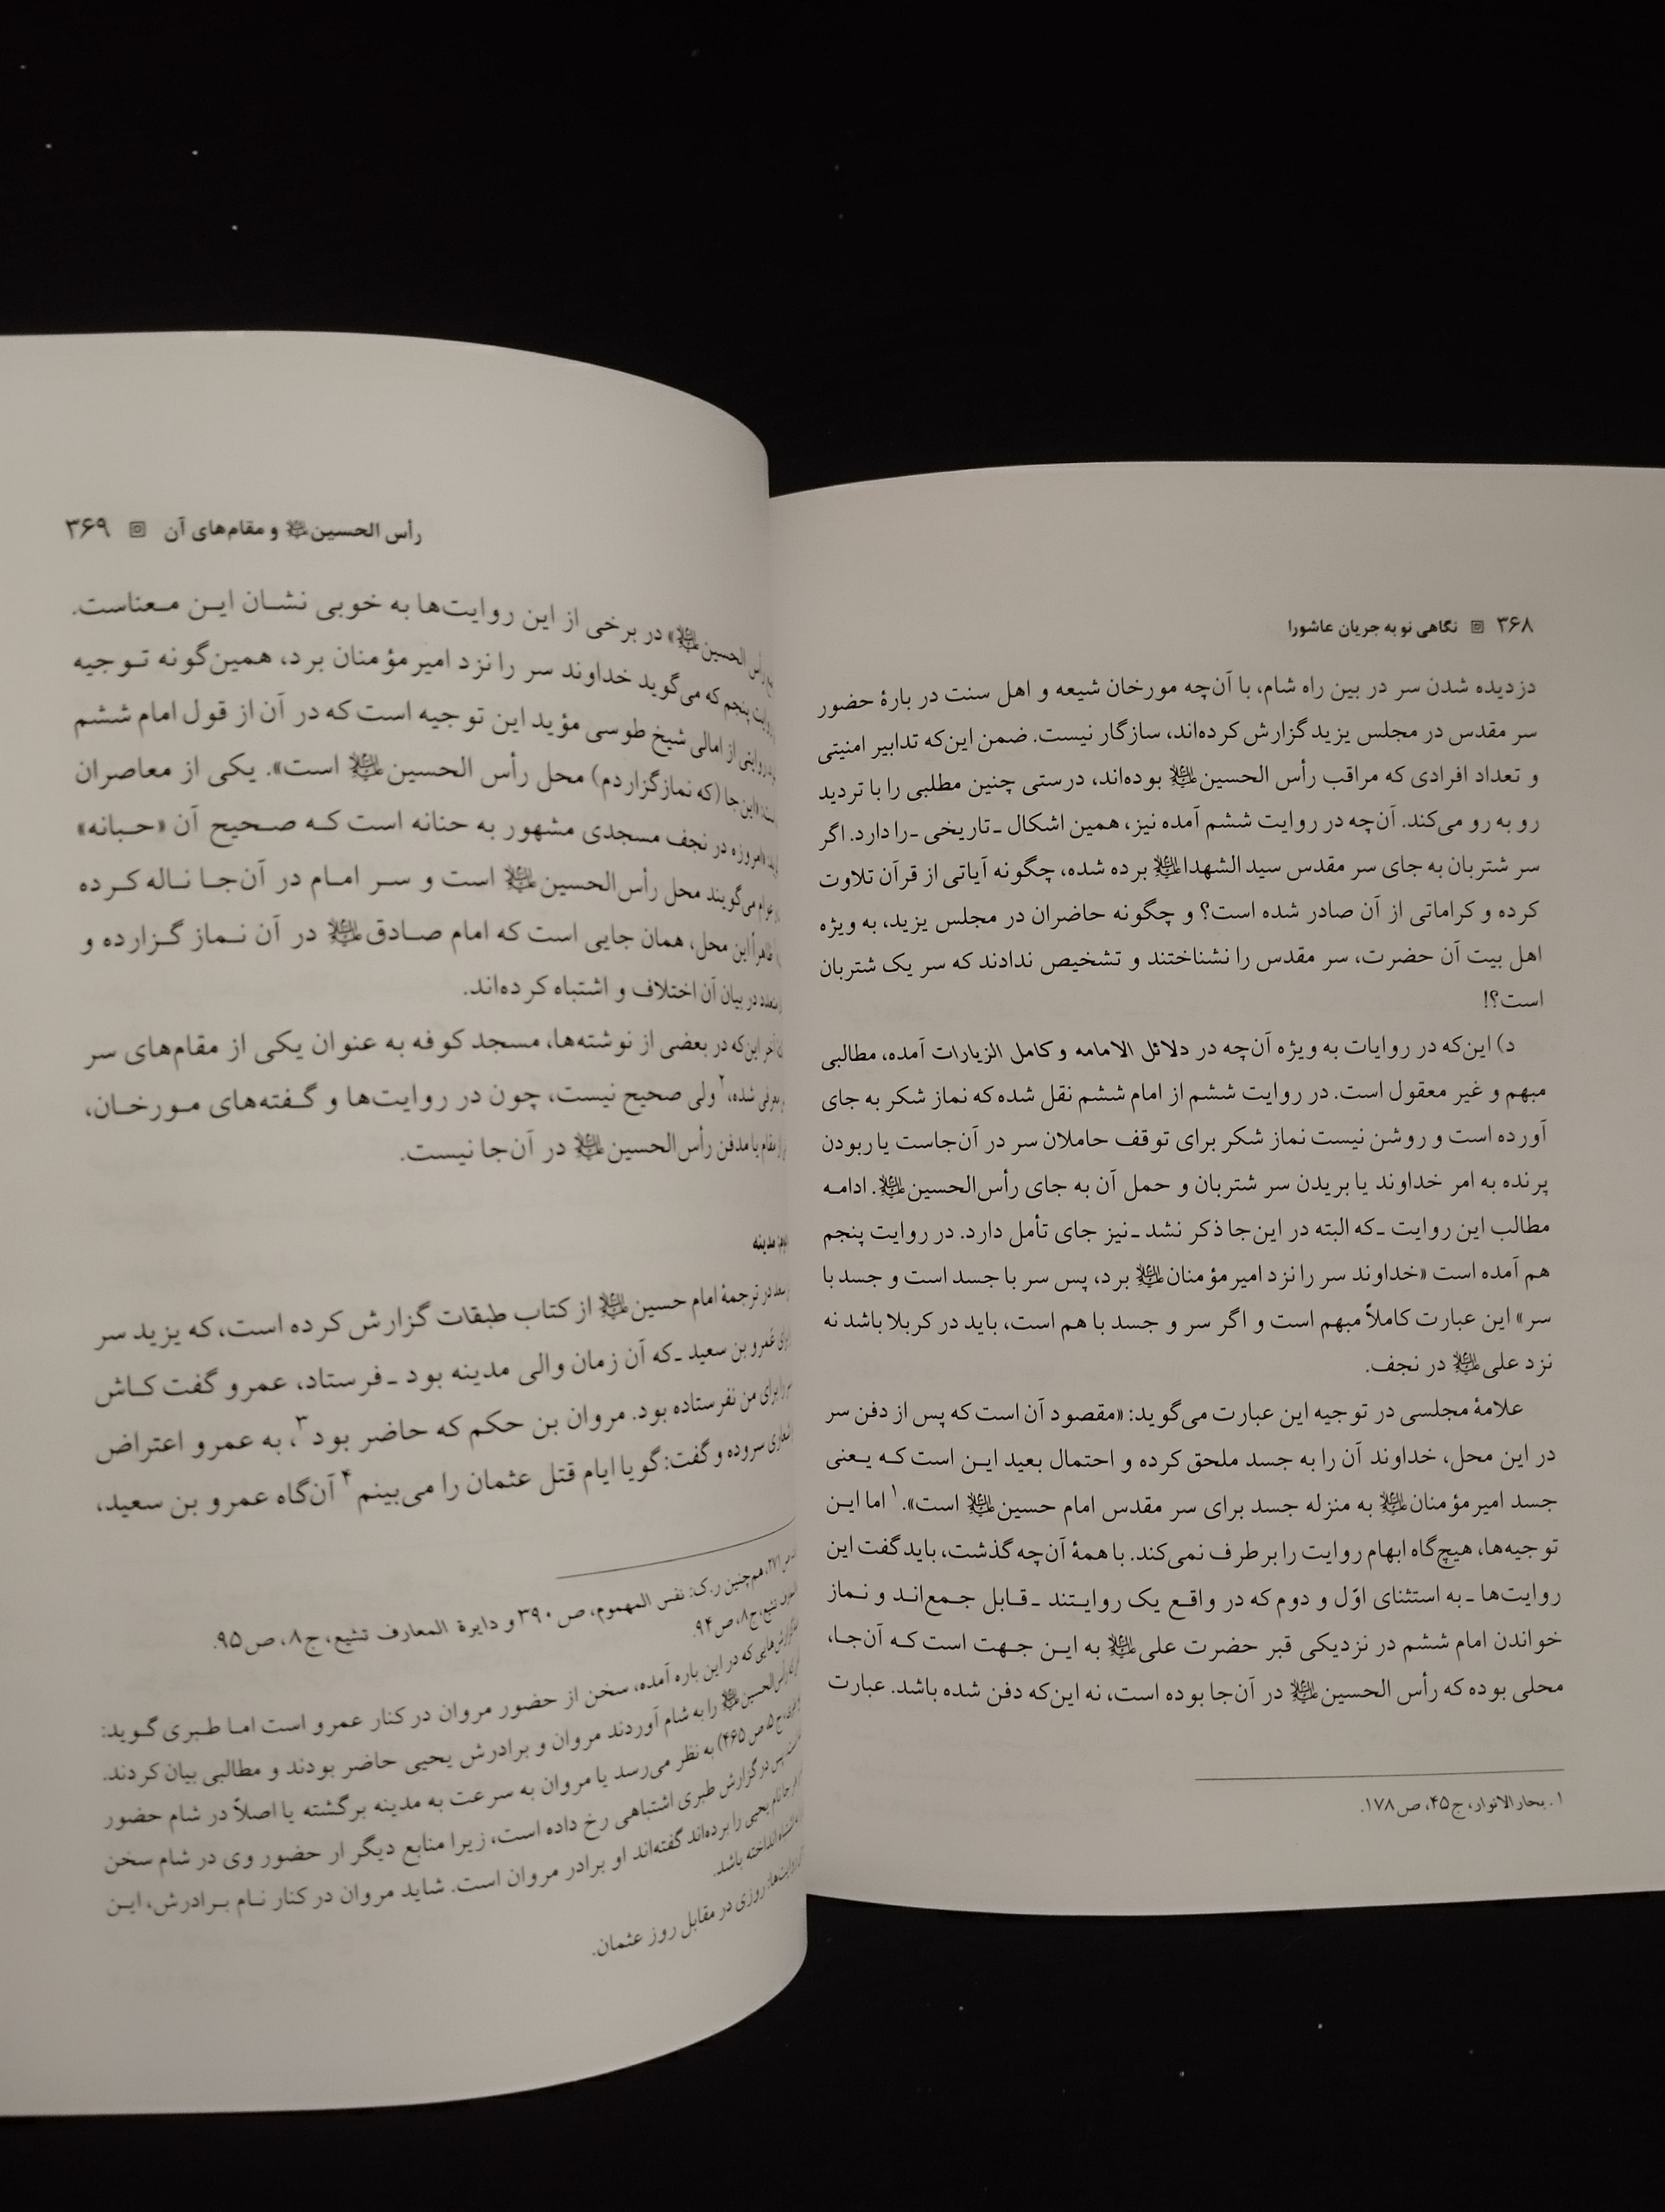 ۳۶۸ نگاهی نو به جریان عاشورا
دزدیده شدن سر در بین راه شام، با آن‌چه مورخان شیعه و اهل سنت در بارهٔ حضور
سر مقدس در مجلس یزید گزارش کرده‌اند، سازگار نیست. ضمن این‌که تدابیر امنیتی
و تعداد افرادی که مراقب رأس الحسین علیه‌السلام بوده‌اند، درستی چنین مطلبی را با تردید
رو به رو می‌کند. آن‌چه در روایت ششم آمده نیز، همین اشکال ـ تاریخی ـ را دارد. اگر
سر شتربان به جای سر مقدس سید الشهدا علیه‌السلام برده شده، چگونه آیاتی از قرآن تلاوت
کرده و کراماتی از آن صادر شده است؟ و چگونه حاضران در مجلس یزید، به ویژه
اهل بیت آن حضرت، سر مقدس را نشناختند و تشخیص ندادند که سر یک شتربان
است؟!
د) این‌که در روایات به ویژه آن‌چه در دلائل الامامه و کامل الزیارات آمده، مطالبی
مبهم و غیر معقول است. در روایت ششم از امام ششم نقل شده که نماز شکر به جای
آورده است و روشن نیست نماز شکر برای توقف حاملان سر در آن‌جاست یا ربودن
پرنده به امر خداوند یا بریدن سر شتربان و حمل آن به جای رأس‌الحسین علیه‌السلام. ادامـه
مطالب این روایت ـ که البته در این‌جا ذکر نشد ـ نیز جای تأمل دارد. در روایت پنجم
هم آمده است «خداوند سر را نزد امیرمؤمنان علیه‌السلام برد، پس سر با جسد است و جسد با
سر» این عبارت کاملاً مبهم است و اگر سر و جسد با هم است، باید در کربلا باشد نه
نزد علی علیه‌السلام در نجف.
علامهٔ مجلسی در توجیه این عبارت می‌گوید: «مقصود آن است که پس از دفن سر
در این محل، خداوند آن را به جسد ملحق کرده و احتمال بعید ایـن است کـه یـعنی
جسد امیرمؤمنان علیه‌السلام به منزله جسد برای سر مقدس امام حسین علیه‌السلام است».۱ اما ایـن
توجیه‌ها، هیچ‌گاه ابهام روایت را برطرف نمی‌کند. با همهٔ آن‌چه گذشت، باید گفت این
روایت‌ها ـ به استثنای اوّل و دوم که در واقـع یک روایـتند ـ قـابل جـمع‌انـد و نـماز
خواندن امام ششم در نزدیکی قبر حضرت علی علیه‌السلام به ایـن جـهت است کـه آن‌جـا،
محلی بوده که رأس الحسین علیه‌السلام در آن‌جا بوده است، نه این‌که دفن شده باشد. عبارت
۱. بحارالانوار، ج۴۵، ص۱۷۸.
رأس الحسین علیه‌السلام و مقام‌های آن ۳۶۹
رأس الحسین علیه‌السلام» در برخی از این روایت‌ها به خوبی نشـان ایـن مـعناست.
پنجم که می‌گوید خداوند سر را نزد امیرمؤمنان برد، همین‌گونه تـوجیه
روایتی از امالی شیخ طوسی مؤید این توجیه است که در آن از قول امام ششم
«این‌جا (که نماز گزاردم) محل رأس الحسین علیه‌السلام است». یکی از معاصران
امروزه در نجف مسجدی مشهور به حنانه است کـه صـحیح آن «حـبانه»
عوام می‌گویند محل رأس‌الحسین علیه‌السلام است و سـر امـام در آن‌جـا نـاله کـرده
ظاهراً این محل، همان جایی است که امام صـادق علیه‌السلام در آن نـماز گـزارده و
در بیان آن اختلاف و اشتباه کرده‌اند.
این‌که در بعضی از نوشته‌ها، مسجد کوفه به عنوان یکی از مقام‌های سر
معرفی شده،۲ ولی صحیح نیست، چون در روایت‌ها و گـفته‌های مـورخـان،
مقام یا مدفن رأس‌الحسین علیه‌السلام در آن‌جا نیست.
مدینه
در ترجمهٔ امام حسین علیه‌السلام از کتاب طبقات گزارش کرده است، که یزید سر
عمرو بن سعید ـ که آن زمان والی مدینه بود ـ فرستاد، عمرو گفت کـاش
برای من نفرستاده بود. مروان بن حکم که حاضر بود۳، به عمرو اعتراض
سروده و گفت: گویا ایام قتل عثمان را می‌بینم۴ آن‌گاه عمرو بن سعید،
هم‌چنین ر.ک: نفس المهموم، ص۳۹۰ و دایرة المعارف تشیع، ج۸، ص۹۵.
تشیع، ج۸، ص۹۴.
که در این باره آمده، سخن از حضور مروان در کنار عمرو است امـا طـبری گـوید:
رأس‌الحسین علیه‌السلام را به شام آوردند مروان و برادرش یحیی حاضر بودند و مطالبی بیان کردند.
ج۵، ص۴۶۵) به نظر می‌رسد یا مروان به سرعت به مدینه برگشته یا اصلاً در شام حضور
در گزارش طبری اشتباهی رخ داده است، زیرا منابع دیگر از حضور وی در شام سخن
نام یحیی را برده‌اند گفته‌اند او برادر مروان است. شاید مروان در کنار نـام بـرادرش، ایـن
انداخته باشد.
روزی در مقابل روز عثمان.